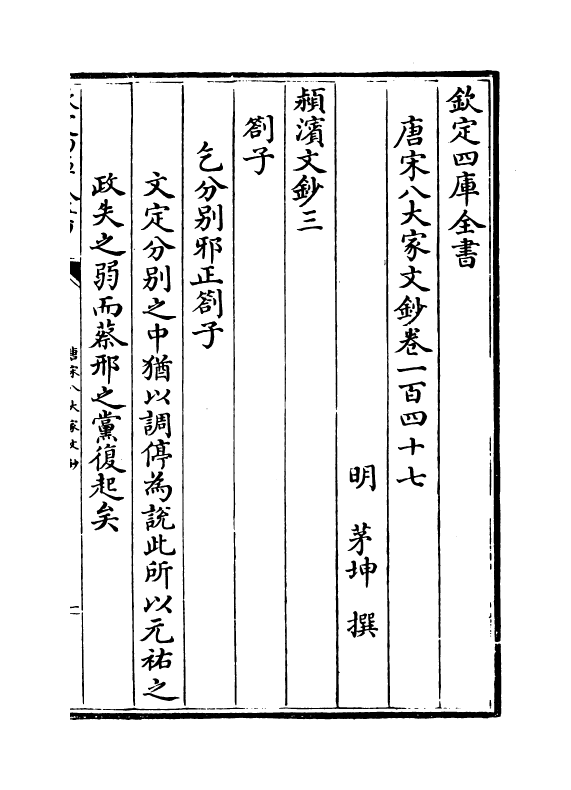 欽定四庫全書
唐宋八大家文鈔卷一百四十七
明 茅坤 撰
頴濱文鈔三
劄子
乞分别邪正劄子
文定分别之中猶以調停為說此所以元祐之
政失之弱而蔡邢之黨復起矣
唐宋八大家文鈔
一